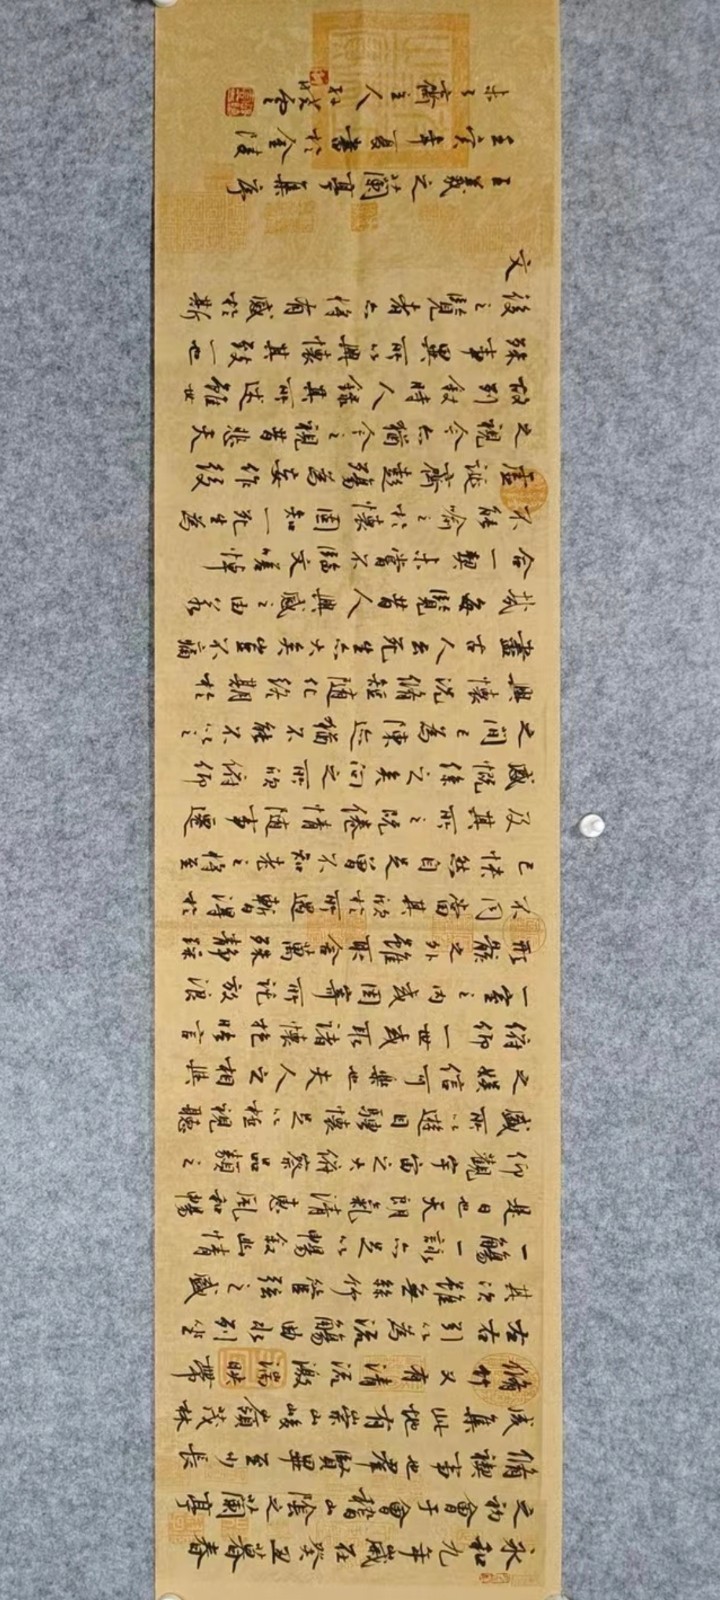 永和九年歲在癸丑暮春
之初會于會稽山陰之蘭亭
脩禊事也群賢畢至少長
咸集此地有崇山峻嶺茂林
脩竹又有清流激湍映帶
左右引以為流觴曲水列坐
其次雖無絲竹管弦之盛
一觴一詠亦足以暢敘幽情
是日也天朗氣清惠風和暢
仰觀宇宙之大俯察品類之
盛所以遊目騁懷足以極視聽
之娛信可樂也夫人之相與
俯仰一世或取諸懷抱晤言
一室之內或因寄所託放浪
形骸之外雖取舍萬殊靜躁
不同當其欣於所遇暫得於
己快然自足曾不知老之將至
及其所之既倦情隨事遷
感慨係之矣向之所欣俯仰
之間已為陳迹猶不能不以之
興懷況脩短隨化終期於
盡古人云死生亦大矣豈不痛
哉每覽昔人興感之由若
合一契未嘗不臨文嗟悼
不能喻之於懷固知一死生為
虛誕齊彭殤為妄作後
之視今亦猶今之視昔悲夫
故列敘時人錄其所述雖世
殊事異所以興懷其致一也
後之覽者亦將有感於斯
文
王羲之蘭亭集序
壬寅年夏書於金陵
齋主人